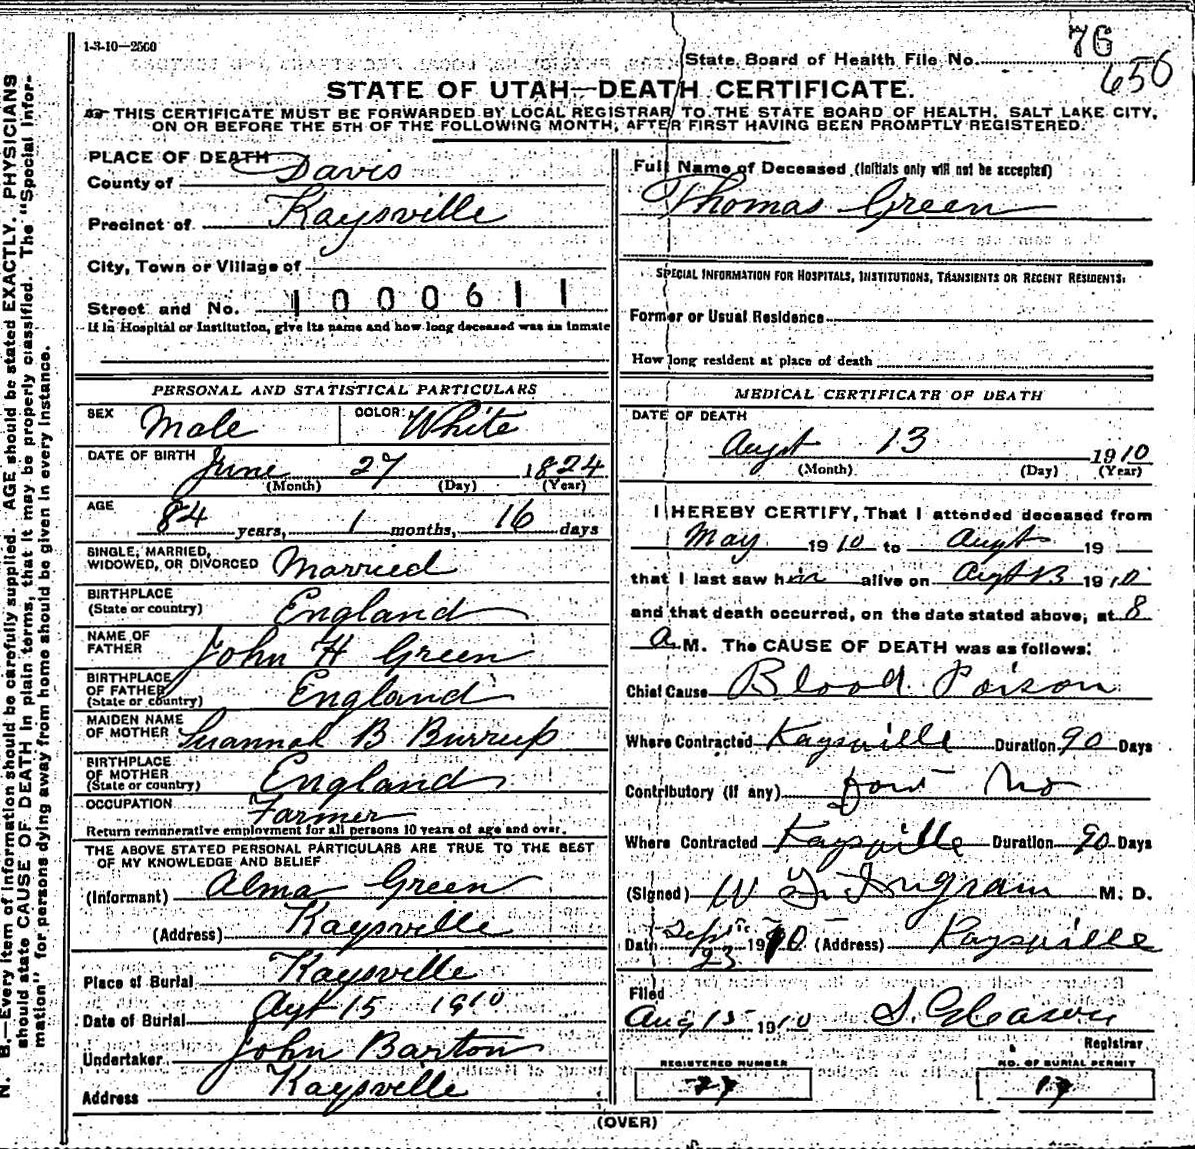 1-3-10—2500
State Board of Health File No. 76
656
STATE OF UTAH—DEATH CERTIFICATE.
THIS CERTIFICATE MUST BE FORWARDED BY LOCAL REGISTRAR TO THE STATE BOARD OF HEALTH, SALT LAKE CITY,
ON OR BEFORE THE 5TH OF THE FOLLOWING MONTH, AFTER FIRST HAVING BEEN PROMPTLY REGISTERED.
N. B.—Every item of information should be carefully supplied. AGE should be stated EXACTLY. PHYSICIANS
should state CAUSE OF DEATH in plain terms, that it may be properly classified. The "Special Infor-
mation" for persons dying away from home should be given in every instance.
PLACE OF DEATH
County of Davis
Precinct of Kaysville
City, Town or Village of
Street and No. 1000611
If in Hospital or Institution, give its name and how long deceased was an inmate
PERSONAL AND STATISTICAL PARTICULARS
SEX Male COLOR: White
DATE OF BIRTH June 27 1824
(Month) (Day) (Year)
AGE 84 years, 1 months, 16 days
SINGLE, MARRIED,
WIDOWED, OR DIVORCED Married
BIRTHPLACE
(State or country) England
NAME OF
FATHER John H Green
BIRTHPLACE
OF FATHER
(State or country) England
MAIDEN NAME
OF MOTHER Susannah B Burrup
BIRTHPLACE
OF MOTHER
(State or country) England
OCCUPATION Farmer
Return remunerative employment for all persons 10 years of age and over.
THE ABOVE STATED PERSONAL PARTICULARS ARE TRUE TO THE BEST
OF MY KNOWLEDGE AND BELIEF
(Informant) Alma Green
(Address) Kaysville
Place of Burial Kaysville
Date of Burial Augt 15 1910
Undertaker John Barton
Address Kaysville
Full Name of Deceased (Initials only will not be accepted)
Thomas Green
SPECIAL INFORMATION FOR HOSPITALS, INSTITUTIONS, TRANSIENTS OR RECENT RESIDENTS:
Former or Usual Residence
How long resident at place of death
MEDICAL CERTIFICATE OF DEATH
DATE OF DEATH
Augt 13 1910
(Month) (Day) (Year)
I HEREBY CERTIFY, That I attended deceased from
May 1910 to Augt 19
that I last saw him alive on Augt 13 1910
and that death occurred, on the date stated above, at 8
a M. The CAUSE OF DEATH was as follows:
Chief Cause Blood Poison
Where Contracted Kaysville Duration 90 Days
Contributory (if any) Dont No
Where Contracted Kaysville Duration 90 Days
(Signed) W Ingram M. D.
Date Sept 23 1910 (Address) Kaysville
Filed
Aug 15 1910 S. Gleason
Registrar
REGISTERED NUMBER NO. OF BURIAL PERMIT
27 17
(OVER)